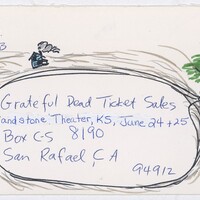 Grateful Dead Ticket Sales
andstone Theater, KS, June 24 + 25
Box C-S 8190
San Rafael, CA
94912